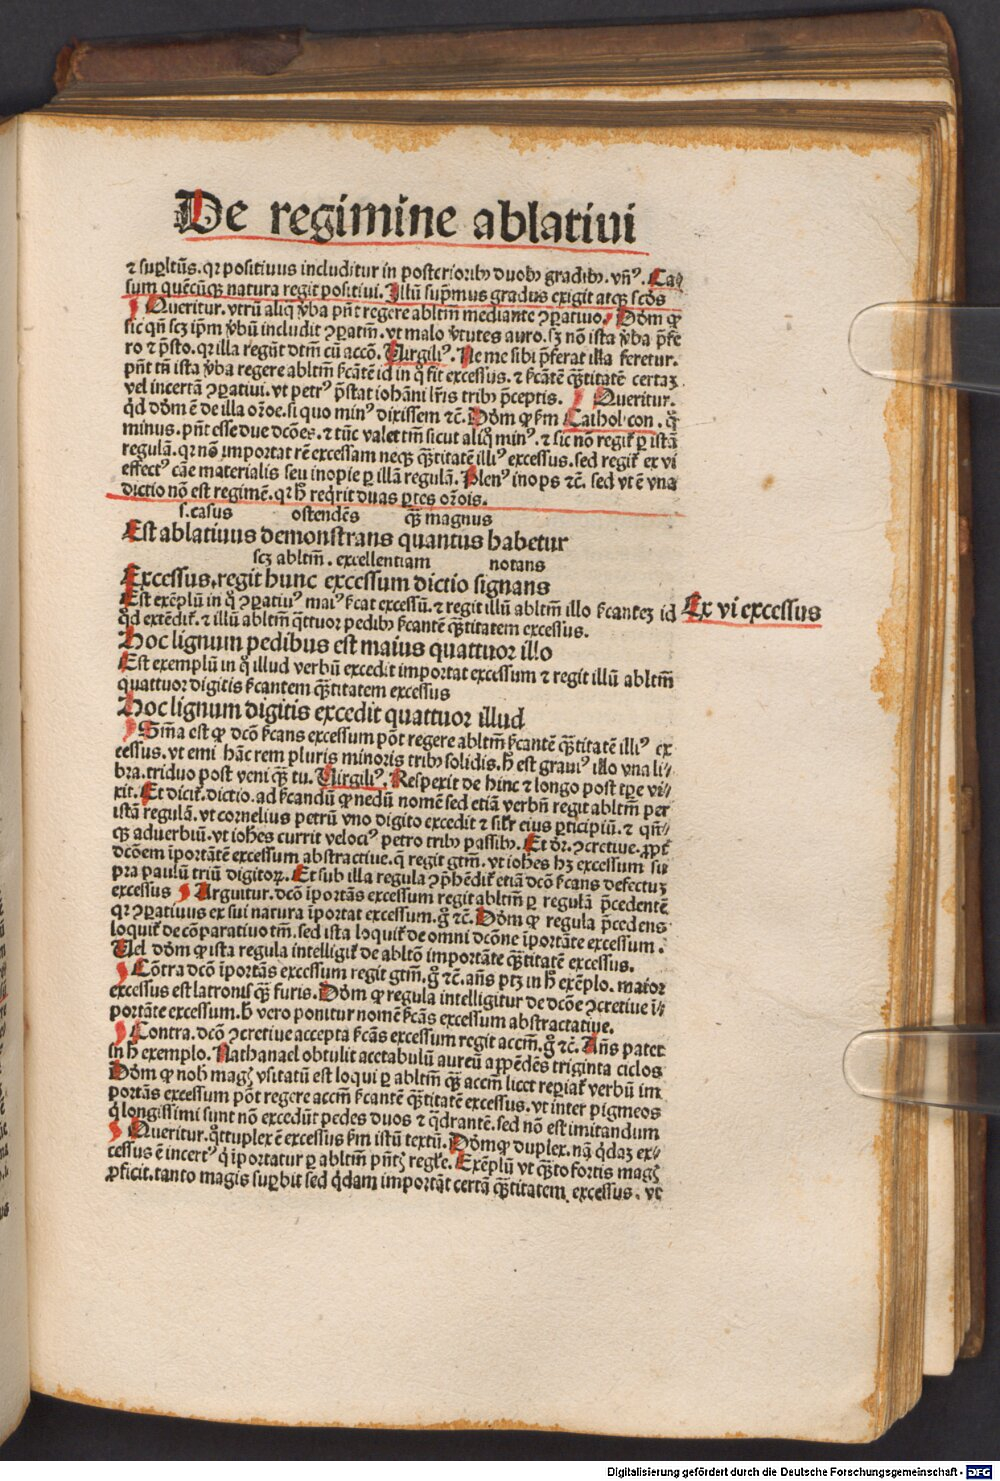 De regimine ablatiui
⁊ suꝑltiũs. qꝛ positiuus includitur in posteriorib⁹ duob⁹ gradib⁹. vñ⁹. Ca⸗
sum quẽcũqꝫ natura regit positiui. Illũ supͥmus gradus exigit atqꝫ scd̃s
Queritur. vtrũ aliq̃ v̾ba pñt regere abltm̃ mediante ꝯꝑatiuo. Dõm ꝙ
sic qñ scꝫ ip̃m v̾bũ includit ꝯꝑatm̃. vt malo v̾tutes auro. sꝫ nõ ista v̾ba p̃fe
ro ⁊ p̃sto. qꝛ illa regũt dtm̃ cũ accõ. Virgili⁹. Ne me sibi p̃ferat illa feretur.
pñt tñ ista v̾ba regere abltm̃ ſcãtẽ id in q̊ fit excessus. ⁊ ſcãtẽ q̃ꝫtitatẽ certaꝫ
vel incertã ꝯꝑatiui. vt petr⁹ p̃stat iohãni lr̃is trib⁹ p̃ceptis. Queritur.
qͥd dõm ẽ de illa or̃õe. si quo min⁹ dixissem ⁊c̃. Dõm ꝙ ſm Cathol⸱con. q̊
minus. pñt esse due dcões. ⁊ tũc valet tm̃ sicut aliq̊ min⁹. ⁊ sic nõ regiť ꝑ istã
regulã. qꝛ nõ importat rẽ excessam neqꝫ q̃ꝫtitatẽ illi⁹ excessus. sed regiť ex vi
effect⁹ cãe materialis seu inopie ꝑ illã regulã. Plen⁹ inops ⁊c̃. sed vt ẽ vna
dictio nõ est regimẽ. qꝛ h̃ reqͥrit duas ꝑtes or̃õis.
s. casus ostendẽs q̃ꝫ magnus
Est ablatiuus demonstrans quantus habetur
scꝫ abltm̃. excellentiam notans
Excessus. regit hunc excessum dictio signans
Est exẽplũ in q̊ ꝯꝑatiu⁹ mai⁹ ſcat excessũ. ⁊ regit illũ abltm̃ illo ſcanteꝫ id
qͥd extẽdiť. ⁊ illũ abltm̃ q̃ttuor pedib⁹ ſcantẽ q̃ꝫtitatem excessus.
Ex vi excessus
Hoc lignum pedibus est maius quattuor illo
Est exemplũ in q̊ illud verbũ excedit importat excessum ⁊ regit illũ abltm̃
quattuor digitis ſcantem q̃ꝫtitatem excessus
Hoc lignum digitis excedit quattuor illud
Sm̃a est ꝙ dcõ ſcans excessum põt regere abltm̃ ſcantẽ q̃ꝫtitatẽ illi⁹ ex
cessus. vt emi hãc rem pluris minoris trib⁹ solidis. h̃ est graui⁹ illo vna li⸗
bra. triduo post veni q̃ꝫ tu. Virgili⁹. Respexit de hinc ⁊ longo post tꝑe vi⸗
xit. Et diciť. dictio. ad ſcandũ ꝙ nedũ nomẽ sed etiã verbũ regit abltm̃ per
istã regulã. vt cornelius petrũ vno digito excedit ⁊ silr eius ꝑticipiũ. ⁊ qñ⸗
qꝫ aduerbiũ. vt ioh̃es currit veloci⁹ petro trib⁹ passib⁹. Et dr̃. ꝯcretiue. ꝓpt̃
dcõem ĩportãtẽ excessum abstractiue. q̃ regit gtm̃. vt ioh̃es hꝫ excessum su
pra paulũ triũ digitoꝝ. Et sub illa regula ꝯp̃hẽdiť etiã dcõ ſcans defectuꝫ
excessus Arguitur. dcõ ĩportãs excessum regit abltm̃ ꝑ regulã p̃cedentẽ
qꝛ ꝯꝑatiuus ex sui natura ĩportat excessum. g̊ ⁊c̃. Dõm ꝙ regula p̃cedens
loquiť de cõparatiuo tm̃. sed ista loquiť de omni dcõne ĩportãte excessum.
Vel dõm ꝙ ista regula intelligiť de abltõ importãte q̃ꝫtitatẽ excessus.
Cõtra dcõ ĩportãs excessum regit gtm̃. g̊ ⁊c̃. añs ptꝫ in h̃ exẽplo. maior
excessus est latronis q̃ꝫ furis. Dõm ꝙ regula intelligitur de dcõe ꝯcretiue ĩ⸗
portãte excessum. h̃ vero ponitur nomẽ ſcãs excessum abstractatiue.
Contra. dcõ ꝯcretiue accepta ſcãs excessum regit accm̃. g̊ ⁊c̃. Añs patet
in h̃ exemplo. Nathanael obtulit acetabulũ aureũ appẽdẽs triginta ciclos
Dõm ꝙ noh̃ mag̃ vsitatũ est loqui ꝑ abltm̃ q̃ꝫ accm̃ licet reꝑiať verbũ im
portãs excessum põt regere accm̃ ſcantẽ q̃ꝫtitatẽ excessus. vt inter pigmeos
q̊ longissimi sunt nõ excedũt pedes duos ⁊ q̃drantẽ. sed nõ est imitandum
Queritur. q̊ttuplex ẽ excessus ſm istũ textũ. Dõm ꝙ duplex. nã q̊daꝫ ex⸗
cessus ẽ incert⁹ q̊ ĩportatur ꝑ abltm̃ pñt̃ regl̃e. Exẽplũ vt q̃ꝫto fortis mag̃
ꝓficit. tanto magis suꝑbit sed q̊dam importãt certã q̃ꝫtitatem excessus. vt
Digitalisierung gefördert durch die Deutsche Forschungsgemeinschaft - DFG